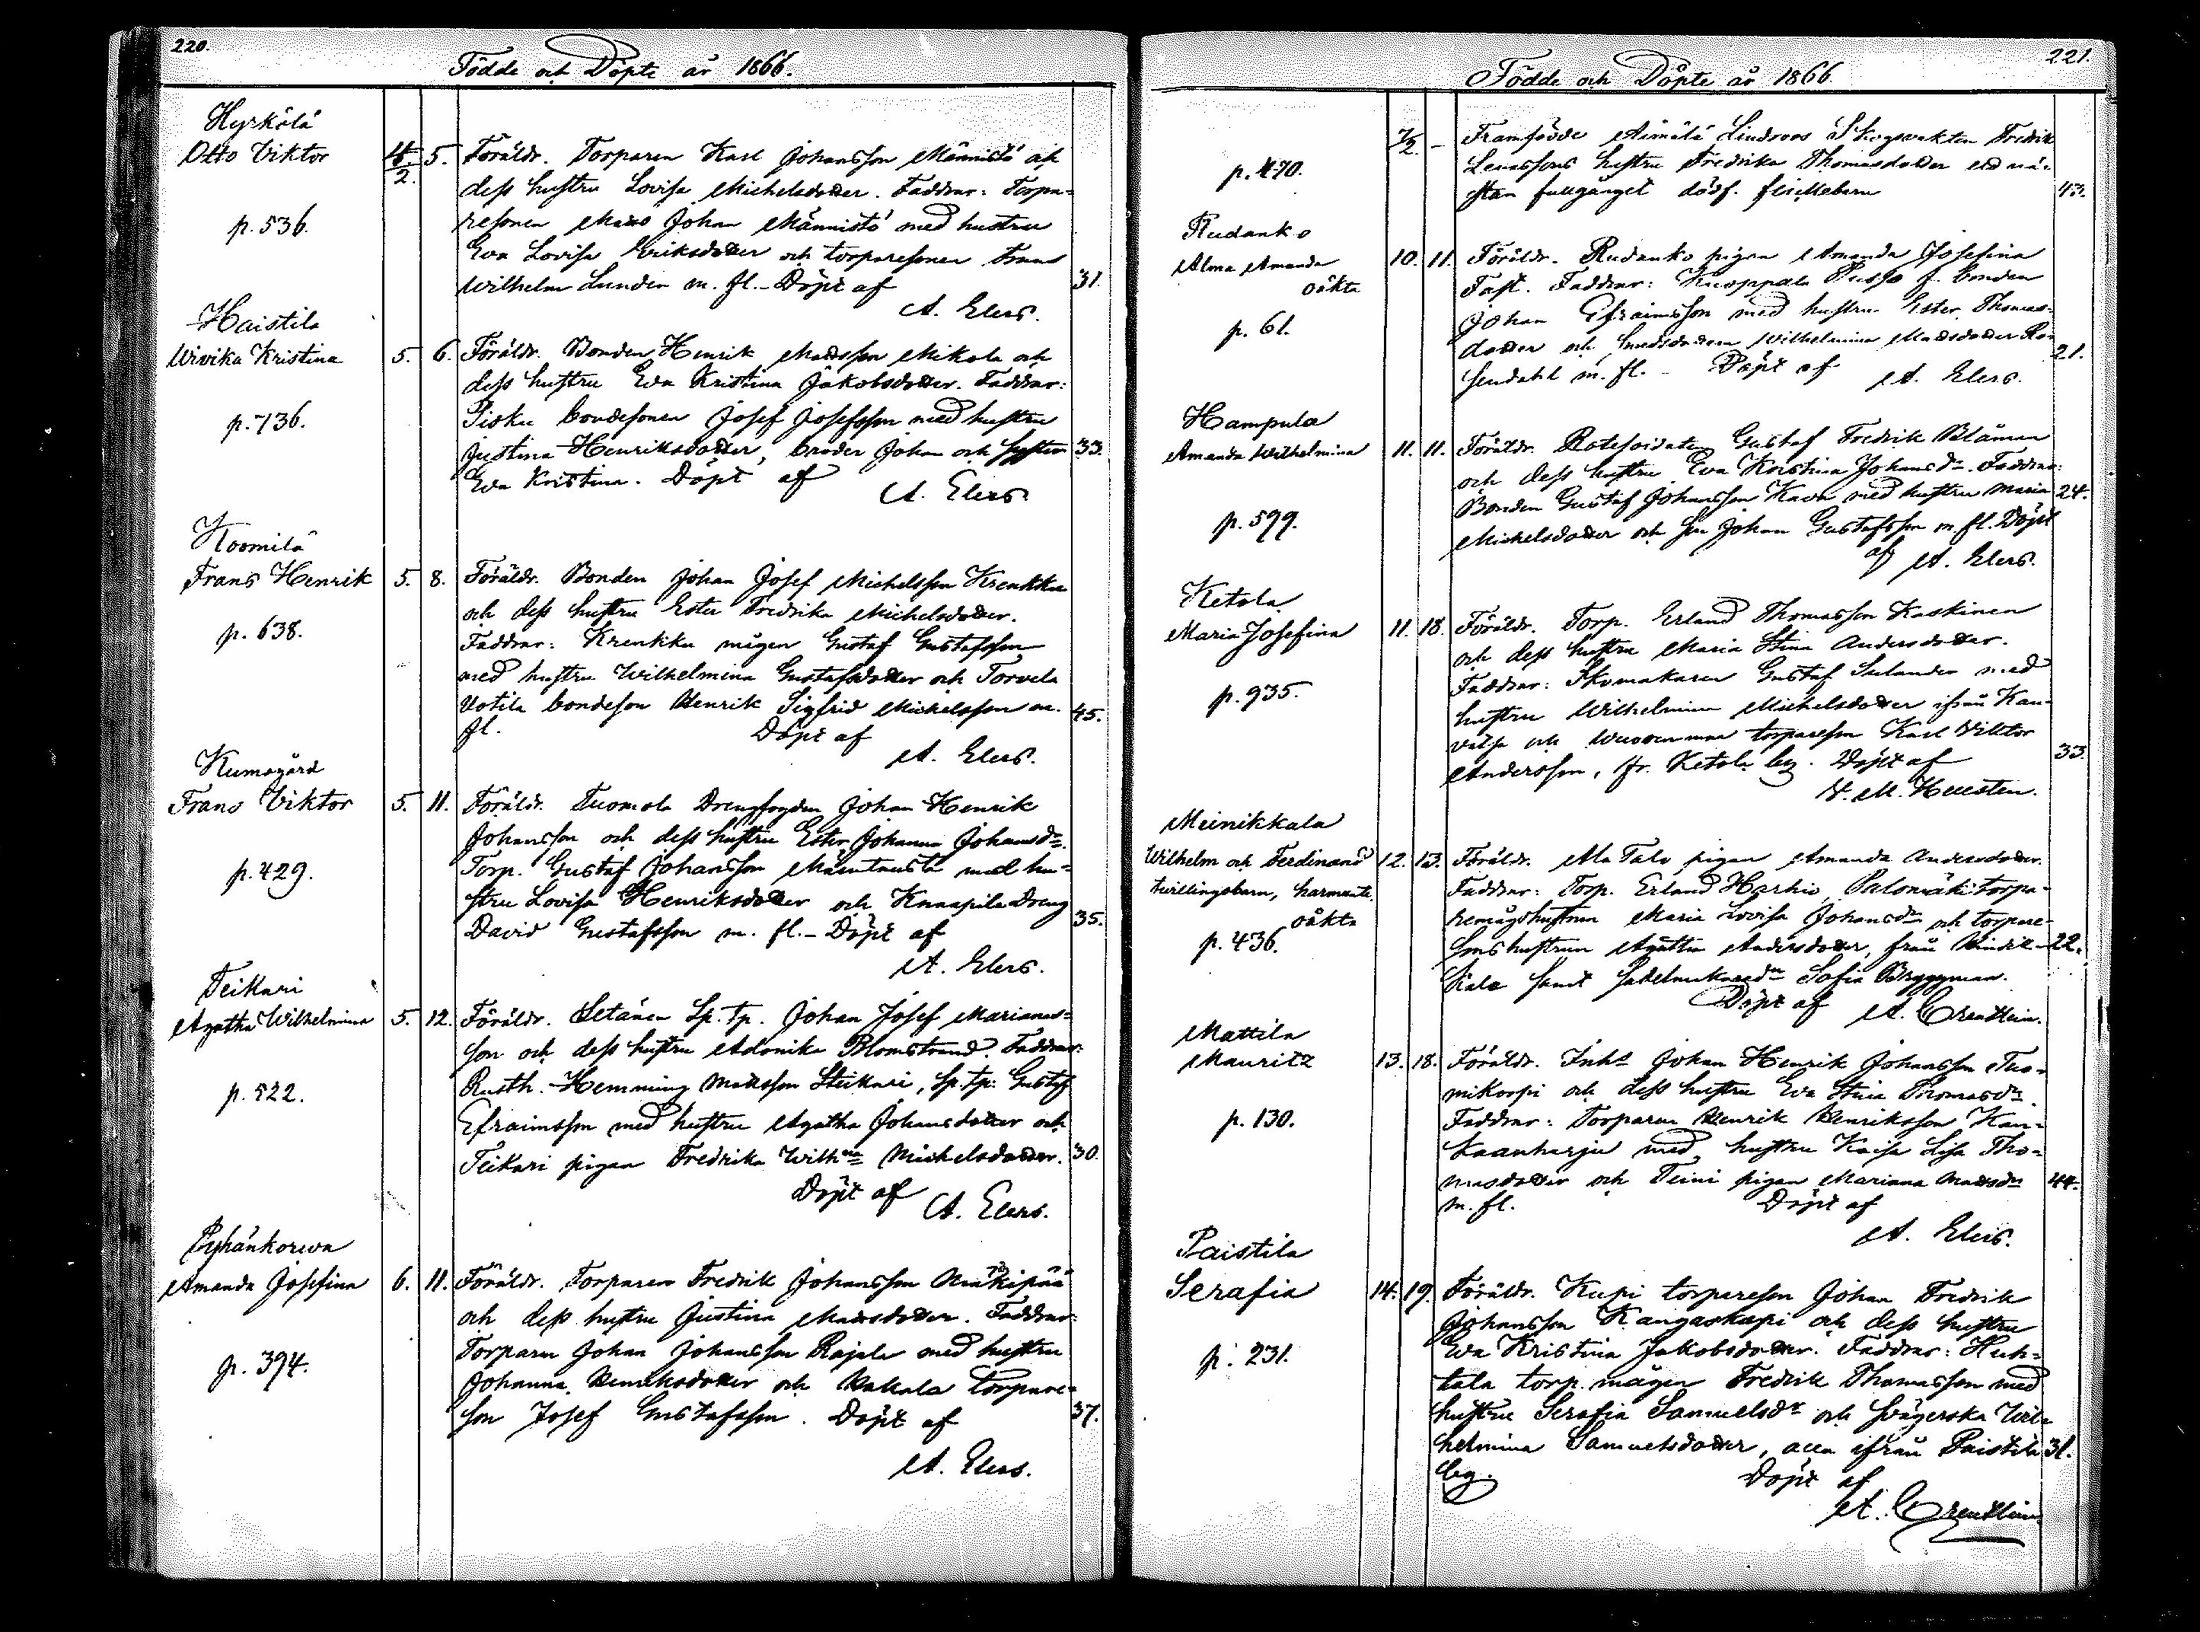 220.
Födde och Döpte år 1866.
Hyrkölä
Otto Viktor
p. 536.
4/2. 5. Föräldr. Torparen Karl Johansson Männistö ock
dess hustru Lovisa Michelsdotter. Faddrar: Torpa-
resonen Mats Johan Männistö med hustru
Eva Lovisa Eriksdotter och torparesonen Frans
Wilhelm Lunden m. fl. - Döpt af 31.
A. Elers.
Haistila
Wivika Kristina
p. 736.
5. 6. Föräldr. Bonden Henrik Matsson Mikola och
dess hustru Eva Kristina Jakobsdotter. Faddrar:
Pisku bondesonen Josef Josefsson med hustru
Justina Henriksdotter, broder Johan och syster 33.
Eva Kristina. Döpt af
A. Elers.
Koomilä
Frans Henrik
p. 638.
5. 8. Föräldr. Bonden Johan Josef Michelsson Krenkku
och dess hustru Ester Fredrika Michelsdotter.
Faddrar: Krenkku mågen Gustaf Gustafsson
med hustru Wilhelmina Gustafsdotter och Torvela
Uotila bondeson Henrik Sigfrid Michelsson m. 45.
fl. Döpt af
A. Elers.
Kumogård
Frans Viktor
p. 429.
5. 11. Föräldr. Tuomola Drengfogden Johan Henrik
Johansson och dess hustru Ester Johanna Johansdr.
Torp. Gustaf Johansson Mäntausta med hu-
stru Lovisa Henriksdotter och Knaapila Dreng
David Gustafsson m. fl. - Döpt af 35.
A. Elers.
Teikari
Agatha Wilhelmina
p. 522.
5. 12. Föräldr. Setänen Sp. Tp. Johan Josef Marianas-
son och dess hustru Adonika Blomstrand. Faddrar:
Rusth. Hemming Matsson Steikari, Sp. Tp: Gustaf
Efraimsson med hustru Agatha Johansdotter och
Teikari pigan Fredrika Wilhna Michelsdotter. 30.
Döpt af
A. Elers.
Pyhänkorwa
Amanda Josefina
p. 394.
6. 11. Föräldr. Torparen Fredrik Johansson Mäkipää
och dess hustru Justina Matsdotter. Faddrar:
Torparen Johan Johansson Rajala med hustru
Johanna Henriksdotter och Kakala torpare-
son Josef Gustafsson. Döpt af 37.
A. Elers.
221.
Födde och Döpte år 1866.
p. 470.
7/2. - Framfödde Äimälä Lindroos Skogvakten Fredrik
Leanssons hustru Fredrika Thomasdotter ett nä-
stan fullgånget dödf. flickebarn 43.
Rudanko
Alma Amanda
oäkta
p. 61.
10. 11. Föräldr. Rudanko pigan Amanda Josefina
Fast. Faddrar: Kuoppala Pusso f. bonden
Johan Efraimsson med hustru Ester Thomas-
dotter och Wilhelmina Matsdotter Ro-
sendahl m. fl. - Döpt af 21.
A. Elers.
Hampula
Amanda Wilhelmina
p. 599.
11. 11. Föräldr. Rotesoldaten Gustaf Fredrik Blåman
och dess hustru Eva Kristina Johansdr. Faddrar:
Bonden Gustaf Johansson Kava med hustru Maria 24.
Michelsdotter och son Johan Gustafsson m. fl. Döpt
af A. Elers.
Ketola
Maria Josefina
p. 935.
11. 18. Föräldr. Torp. Erland Thomasson Kaskinen
och dess hustru Maria Stina Andersdotter.
Faddrar: Skomakaren Gustaf Sulander med
hustru Wilhelmina Michelsdotter ifrån Kau-
vatsa och torpareson Karl Viktor
Andersson, fr. Ketola by. Döpt af 33
Meinikkala
Wilhelm och Ferdinand
twillingsbarn, barmente
oäkta
p. 436.
12. 13. Föräldr. Ala Talo pigan Amanda Andersdotter.
Faddrar: Torp. Erland Harhio, Palomäki torpa-
remågshustrun Maria Lovisa Johansdr och torpare-
sonshustrun Agatha Andersdotter, från 22.
kala samt sadelmakaredr Sofia Bryggman.
Döpt af
A. Grenthein.
Mattila
Mauritz
p. 130.
13. 18. Föräldr. Inhs Johan Henrik Johansson Tuo-
mikorpi och dess hustru Eva Stina Thomasdr.
Faddrar: Torparen Henrik Henriksson Kan-
kaanharju med hustru Kaisa Lisa Tho-
masdotter och Teini pigan Mariana Matsdr 44.
m. fl. Döpt af
A. Elers.
Paistila
Serafia
p. 231.
14. 19. Föräldr. Kupi torpareson Johan Fredrik
Johansson Kangaskapi och dess hustru
Eva Kristina Jakobsdotter. Faddrar: Huh-
tala torp. mågen Fredrik Thomasson med
hustru Serafia Samuelsdr och svägerska Wil-
helmina Samuelsdotter, alla ifrån Paistila 31.
by. Döpt af
A. Grenthein